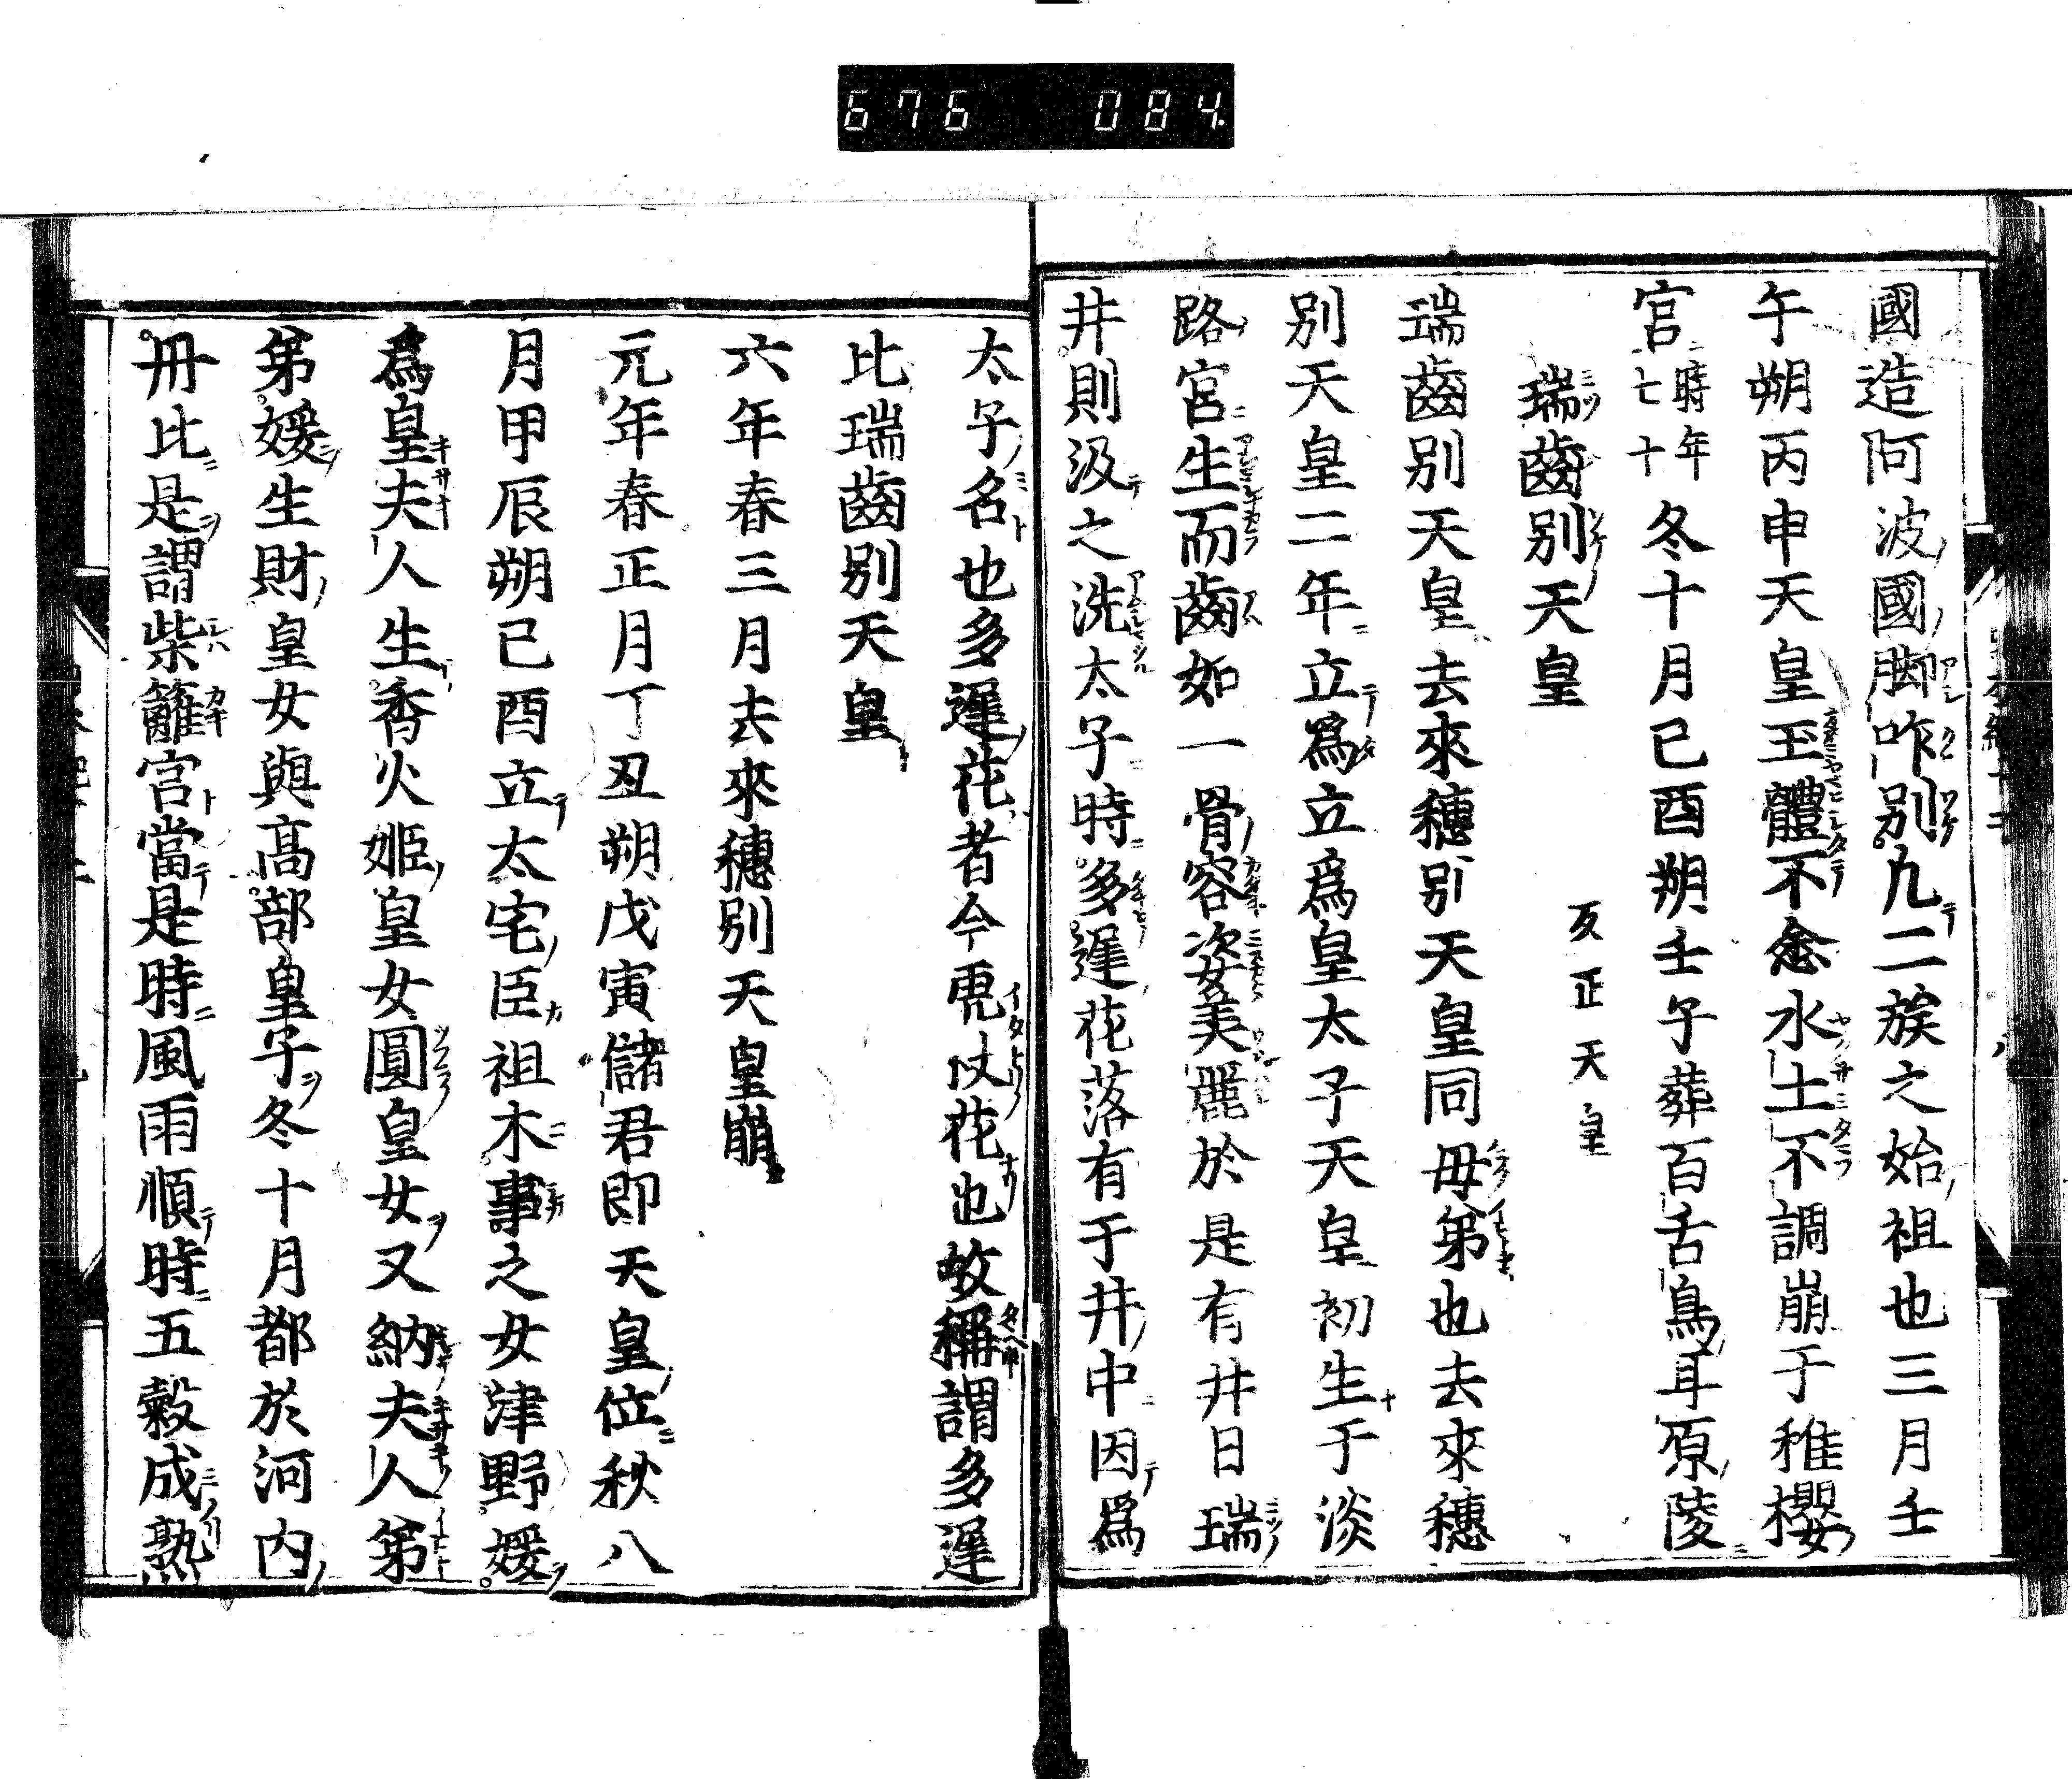 676 084
國造阿波國脚咋別九二族之始祖也三月壬
午朔丙申天皇玉體不悆水土不調崩于稚櫻
宮時年七十冬十月己酉朔壬子葬百舌鳥耳原陵
瑞齒別天皇 反正天皇
瑞齒別天皇去來穗別天皇同母弟也去來穗
別天皇二年立爲立爲皇太子天皇初生于淡
路宮生而齒如一骨容姿美麗於是有井曰瑞
井則汲之洗太子時多遲花落有于井中因爲
太子名也多遲花者今虎杖花也故稱謂多遲
比瑞齒別天皇
六年春三月去來穗別天皇崩
元年春正月丁丑朔戊寅儲君即天皇位秋八
月甲辰朔己酉立太宅臣祖木事之女津野媛
爲皇夫人生香火姬皇女圓皇女又納夫人弟
弟媛生財皇女與高部皇子冬十月都於河内
丹比是謂柴籬宮當是時風雨順時五穀成熟